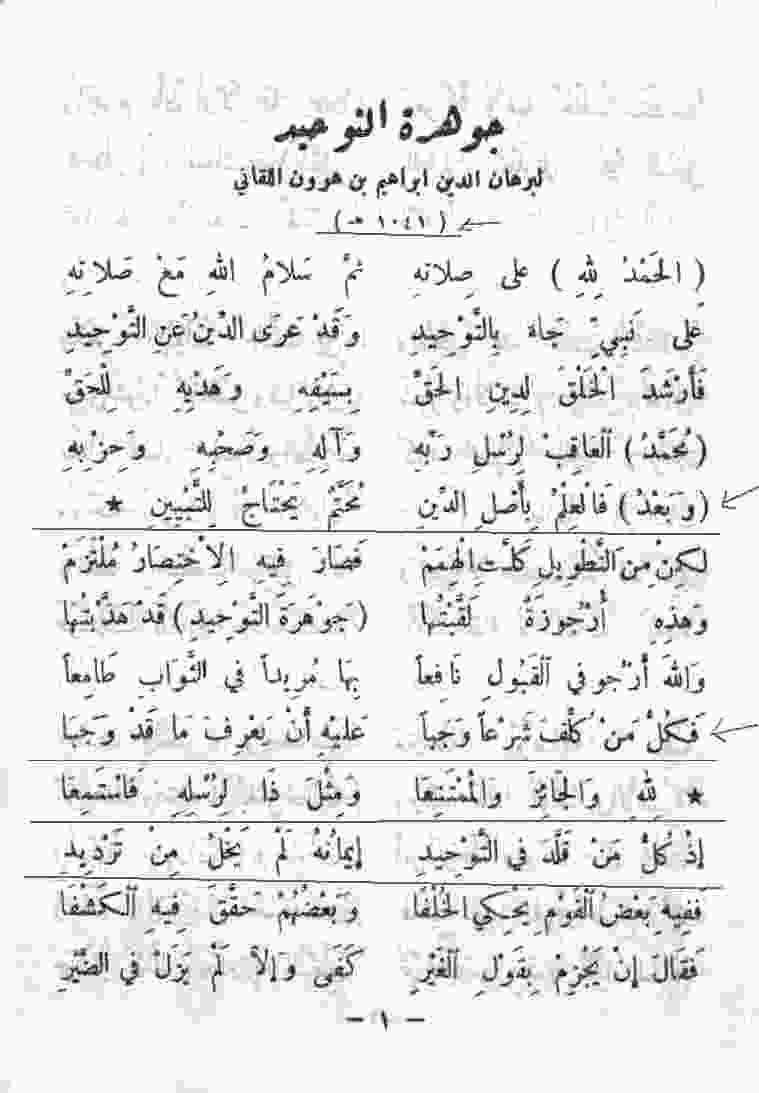 جوهرة التوحيد
لبرهان الدين ابراهيم بن هرون اللقاني
( ١٠٤١ هـ )
( الحَمْدُ لِلهِ ) على صِلاتهِ ثمَّ سَلامُ اللهِ مَعْ صَلاتِهِ
عَلى نَبِيٍّ جَاءَ بِالتَّوْحِيدِ وَقَدْ عَرَى الدِّينُ عَنِ التَّوْحِيدِ
فَأَرْشَدَ الْخَلْقَ لِدِينِ الحَقِّ بِسَيْفِهِ وَهَدْيِهِ لِلْحَقِّ
( مُحَمَّدُ ) الْعَاقِبْ لِرُسْلِ رَبِّهِ وَآلِهِ وَصَحْبِهِ وَحِزْبِهِ
( وَبَعْدُ ) فَالْعِلْمُ بِأَصْلِ الدِّينِ مُحَتَّمٌ يَحْتَاجُ لِلتَّبْيِينِ ★
لكِنْ مِنَ التَّطْوِيلِ كَلَّتِ الْهِمَمْ فَصَارَ فِيهِ الِاخْتِصَارُ مُلْتَزَمْ
وَهذِهِ أُرْجُوزَةٌ لَقَّبْتُها ( جَوْهَرَةَ التَّوْحِيدِ ) قَدْ هَذَّبْتُها
وَاللهَ أَرْجُو في الْقَبُولِ نَافِعاً بِهَا مُرِيداً في الثَّوَابِ طَامِعاً
فَكُلُّ مَنْ كُلِّفَ شَرْعاً وَجَبا عَليْهِ أَنْ يَعْرِفَ مَا قَدْ وَجَبَا
★ لِلهِ وَالجَائِزَ وَالْمُمْتَنِعَا وَمِثْلَ ذَا لِرُسْلِهِ فَاسْتَمِعَا
إِذْ كلُّ مَنْ قَلَّدَ في التَّوْحِيدِ إِيمَانُهُ لَمْ يَخْلُ مِنْ تَرْدِيدِ
فَفِيهِ بَعْضُ الْقَوْمِ يَحْكِي الخُلْفَا وَبَعْضُهُمْ حَقَّقَ فِيهِ الْكَشْفَا
فَقَالَ إِنْ يَجْزِمْ بِقَوْلِ الْغَيْرِ كَفَى وَإِلاَّ لَمْ يَزَلْ في الضَّيْرِ
— ١ —